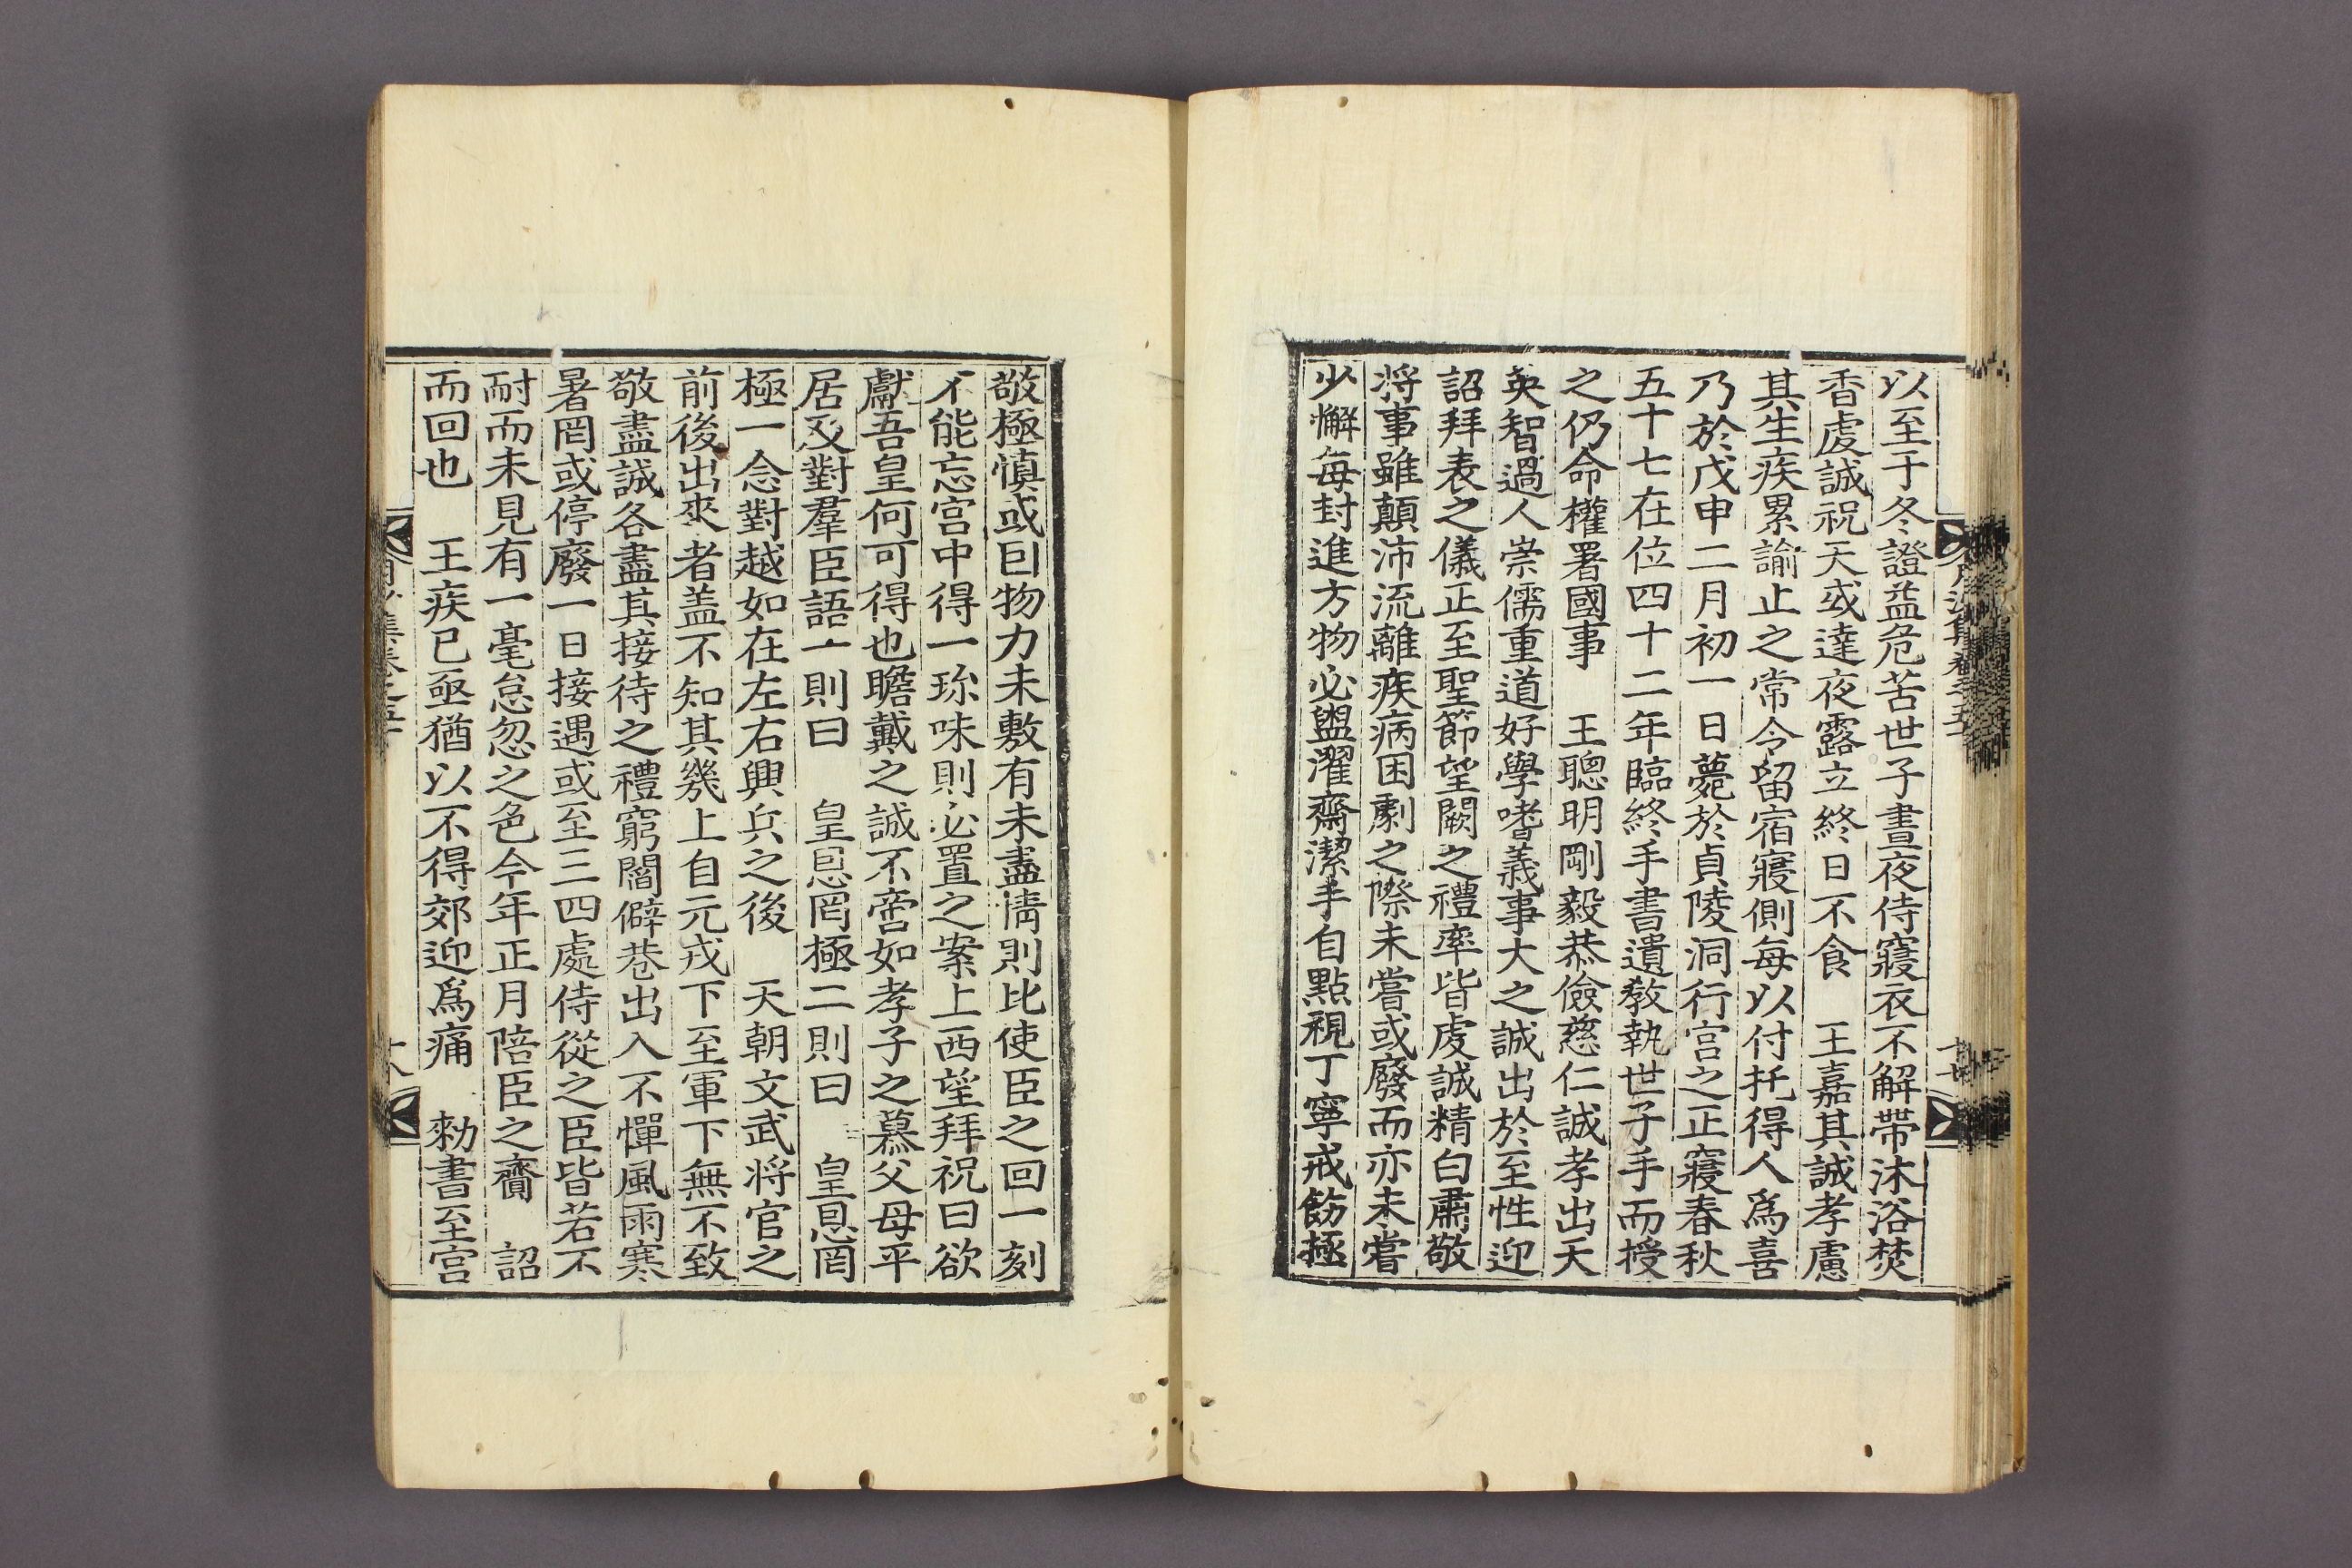 以至于冬證益危苦世子晝夜侍寢衣不解帶沐浴焚
香虔誠祝天或達夜露立終日不食　王嘉其誠孝慮
其生疾累諭止之常令留宿寢側每以付托得人爲喜
乃於戊申二月初一日薨於貞陵洞行宮之正寢春秋
五十七在位四十二年臨終手書遺敎執世子手而授
之仍命權署國事　王聰明剛毅恭儉慈仁誠孝出天
英智過人崇儒重道好學嗜義事大之誠出於至性迎
詔拜表之儀正至聖節望闕之禮率皆虔誠精白肅敬
將事雖顚沛流離疾病困劇之際未嘗或廢而亦未嘗
少懈每封進方物必盥濯齋潔手自點視丁寧戒飭極
敬極愼或曰物力未敷有未盡情則比使臣之回一刻
不能忘宮中得一珎味則必置之案上西望拜祝曰欲
獻吾皇何可得也瞻戴之誠不啻如孝子之慕父母平
居及對羣臣語一則曰　皇恩罔極二則曰　皇恩罔
極一念對越如在左右興兵之後　天朝文武將官之
前後出來者盖不知其幾上自元戎下至軍下無不致
敬盡誠各盡其接待之禮窮閻僻巷出入不憚風雨寒
暑罔或停廢一日接遇或至三四處侍從之臣皆若不
耐而未見有一毫怠忽之色今年正月陪臣之齎　詔
而回也　王疾已亟猶以不得郊迎爲痛　勑書至宮